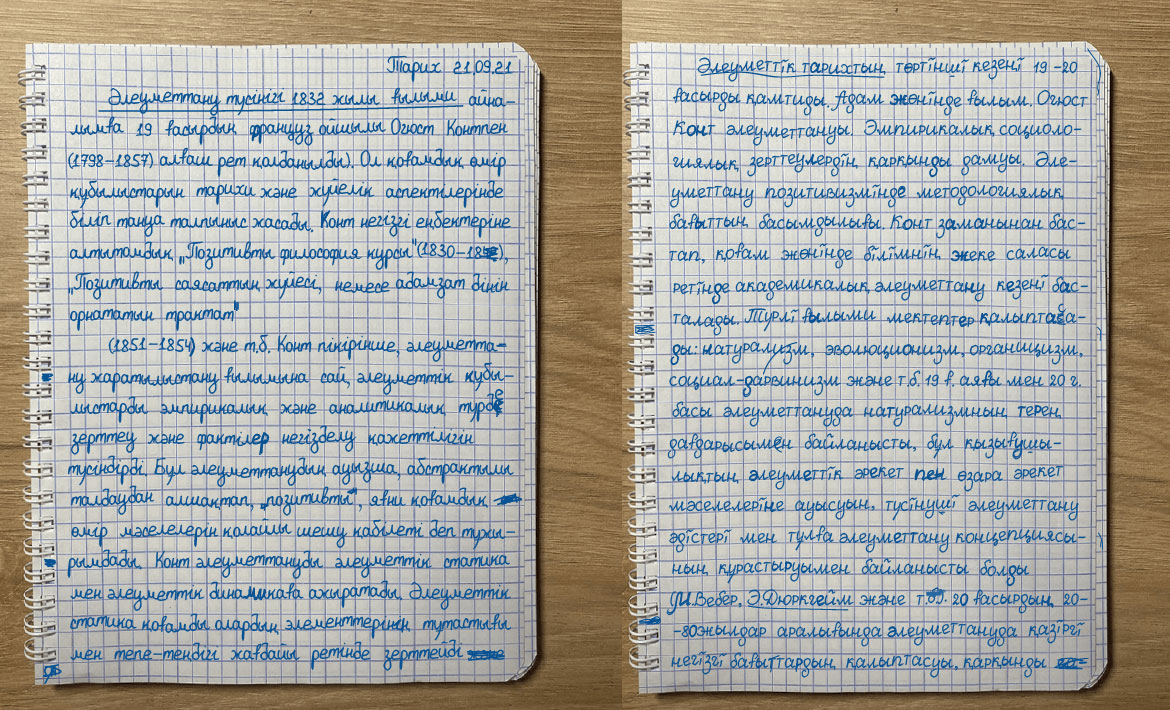 Тарих 21.09.21
Әлеуметтану түсінігі 1832 жылы ғылыми айна-
лымға 19 ғасырдың француз ойшылы Огюст Контпен
(1798-1857) алғаш рет қолданылды). Ол қоғамдық өмір
құбылыстарын тарихи және жүйелік аспектілерінде
біліп тануға талпыныс жасады. Конт негізгі еңбектеріне
алтытамдық „Позитивты философия курсы" (1830-18),
„Позитивты саясаттың жүйесі, немесе адамзат дінін
орнататын трактат"
(1851-1854) және т.б. Конт пікірінше, әлеуметта-
ну жаратылыстану ғылымына сай, әлеуметтік құбы-
лыстарды эмпирикалық және аналитикалық түрде
зерттеу және фактілер негізделу қажеттілігін
түсіндірді. Бұл әлеуметтанудың ауызша, абстрактылы
талдаудан алшақтап, „позитивты", яғни қоғамдық
өмір мәселелерін қолайлы шешу қабілеті деп тұжы-
рымдады. Конт әлеуметтануды әлеуметтік статика
мен әлеуметтік динамикаға ажыратады. Әлеуметтік
статика қоғамды олардың элементтерінің тұтастығы
мен тепе-теңдігі жағдайы ретінде зерттейді
Әлеуметтік тарихтың төртінші кезеңі 19-20
ғасырды қамтиды. Адам жөнінде ғылым. Огюст
Конт әлеуметтануы. Эмпирикалық социоло-
гиялық зерттеулердің қарқынды дамуы. Әле-
уметтану позитивизмінде методологиялық
бағыттың басымдылығы. Конт заманынан бас-
тап, қоғам жөнінде білімнің жеке саласы
ретінде академикалық әлеуметтану кезеңі бас-
талады. Түрлі ғылыми мектептер қалыптаса-
ды: натурализм, эволюционизм, органицизм,
социал-дарвинизм және т.б. 19 ғ. аяғы мен 20 ғ.
басы әлеуметтануда натурализмның терең
дағдарысымен байланысты, бұл қызығушы-
лықтың әлеуметтік әрекет пен өзара әрекет
мәселелеріне ауысуын, түсінуші әлеуметтану
әдістері мен тұлға әлеуметтану концепциясы-
ның құрастыруымен байланысты болды
М.Вебер, Э.Дюркгейм және т.б. 20 ғасырдың 20-
-80жылдар аралығында әлеуметтануда қазіргі
негізгі бағыттардың қалыптасуы, қарқынды